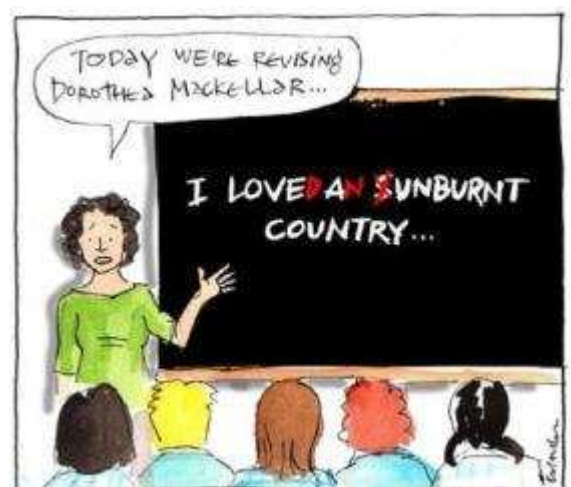 TODAY WE'RE REVISING
DOROTHEA MACKELLAR...
I LOVED AN SUNBURNT
COUNTRY...